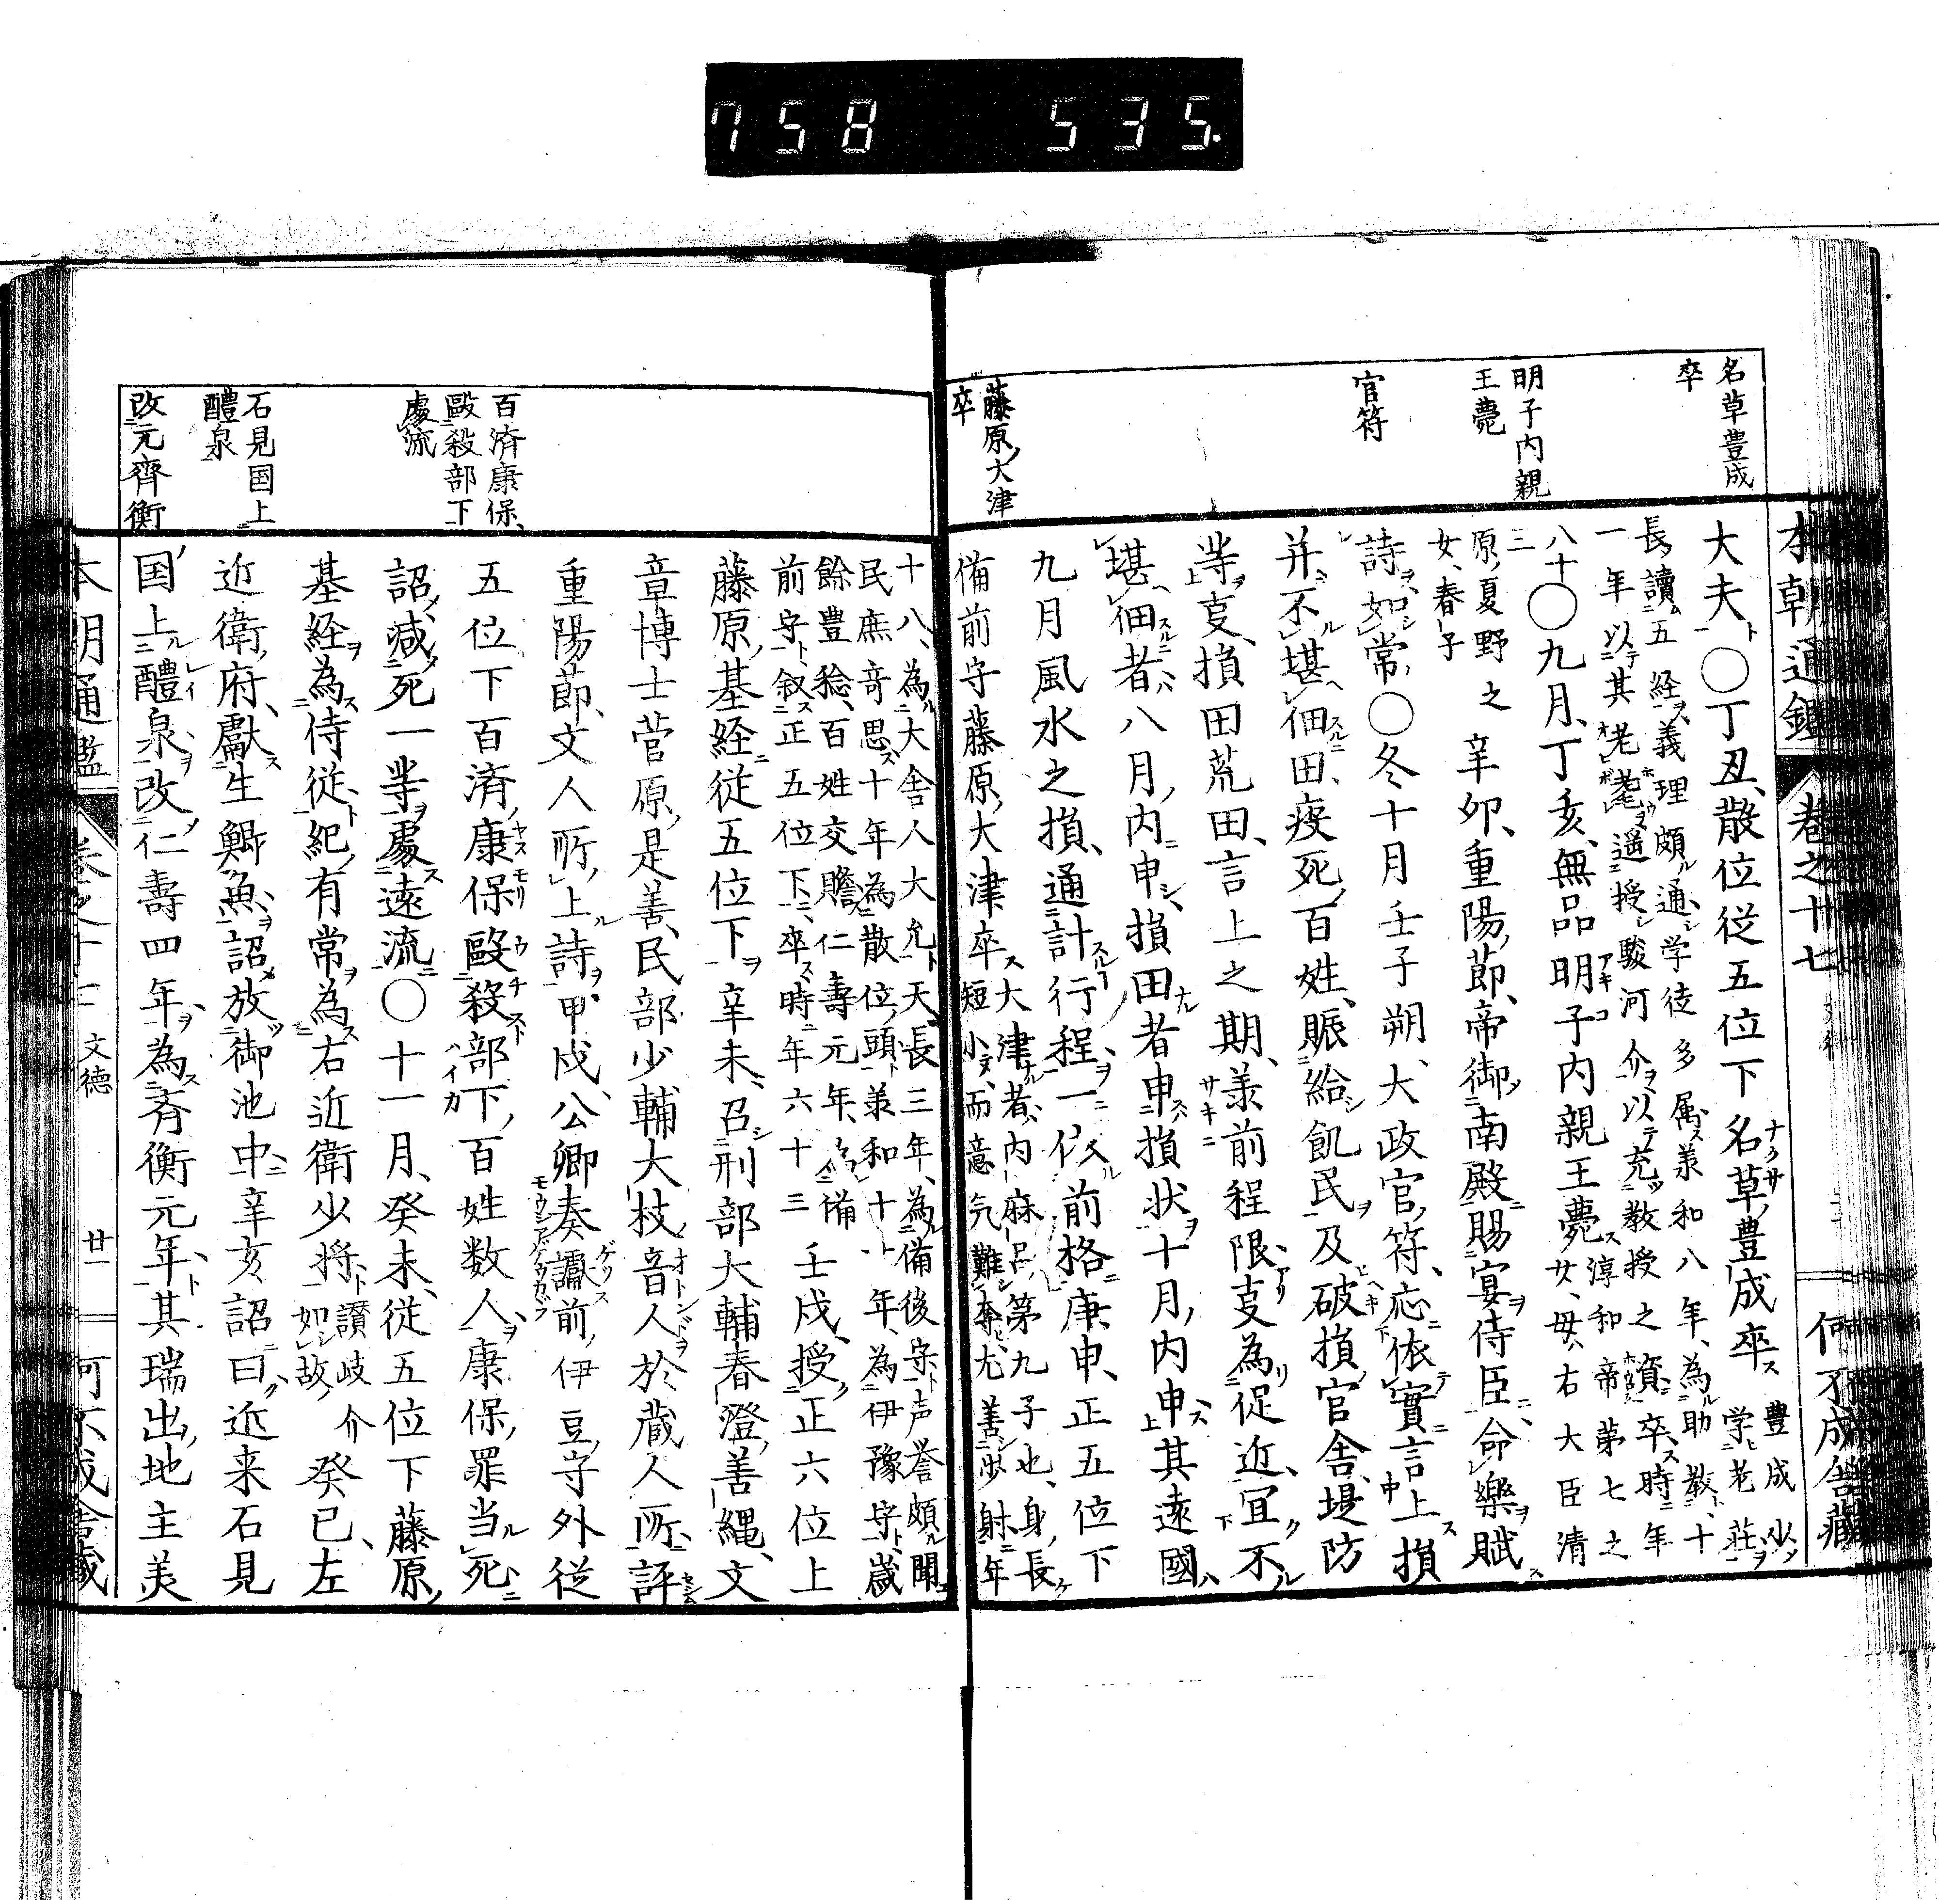 758 535.
名草豊成
卒
明子内親
王薨
官符
藤原大津
卒
本朝通鑑 巻之十七
大夫○丁丑散位従五位下名草豊成卒 豊成少学老荘
長讀五経義理頗通学徒多属美和八年為助教十
一年以其老耄遥授駿河介以充教授之資卒時年
八十三○九月丁亥無品明子内親王薨 淳和帝第七之
女母右大臣清
原夏野之
女春子
辛卯重陽節帝御南殿賜宴侍臣命樂賦
詩如常○冬十月壬子朔大政官符応依實言上損
并不堪佃田疫死百姓賑給飢民及破損官舎堤防
等叓損田荒田言上之期美前程限叓為促近宜不
堪佃者八月内申損田者申損状十月内申其遠國
九月風水之損通計行程一依前格庚申正五位下
備前守藤原大津卒 大津者内麻呂第九子也身長
短小而意氣難奪尤善歩射年
百済康保
毆殺部下
處流
石見国上
醴泉
改元齊衡
十八為大舎人大允天長三年為備後守声誉頗聞
民庶竒思十年為散位頭美和十一年為伊豫守歳
餘豊稔百姓交贍仁壽元年 備
前守叙正五位下卒時年六十三
壬戌授正六位上
藤原基経従五位下辛未召刑部大輔春澄善縄文
章博士菅原是善民部少輔大枝音人於蔵人所評
重陽節文人所上詩甲戌公卿奏讞前伊豆守外従
五位下百済康保毆殺部下百姓数人康保罪当死
詔減死一等處遠流○十一月癸未従五位下藤原
基経為侍従紀有常為右近衛少将 讃岐介
如故
癸已左
近衛府獻生鯽魚詔放御池中辛亥詔曰近来石見
国上醴泉改仁壽四年為斉衡元年其瑞出地主美
本朝通鑑 巻之十七 文徳 廿一 何不成舎蔵